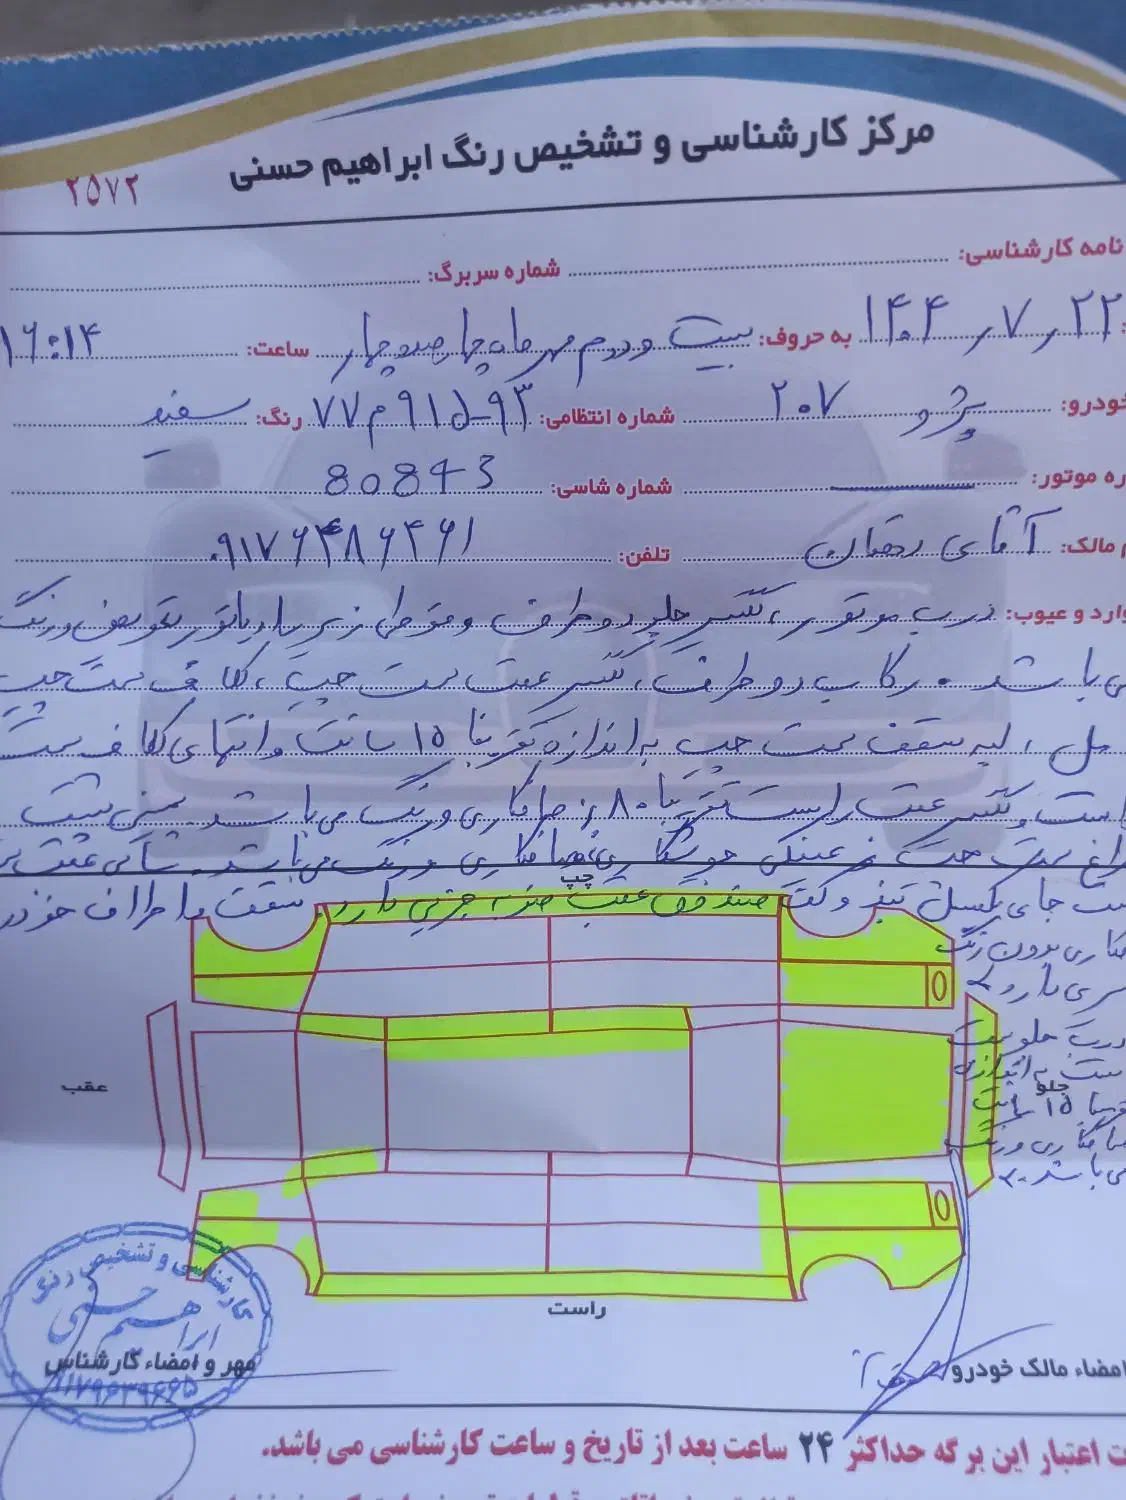 مرکز کارشناسی و تشخیص رنگ ابراهیم حسنی
۲۵۷۲
نامه کارشناسی:
شماره سربرگ:
۱۴۰۴٫۷٫۲۲ به حروف: بیست و دوم مهر ماه چهارصد و چهار ساعت: ۱۶:۱۴
خودرو: پژو ۲۰۷ شماره انتظامی: ۹۳-۹۱۵م۷۷ رنگ: سفید
ره موتور: شماره شاسی: 80843
مالک: آقای دهقان تلفن: ۰۹۱۷۶۴۸۶۴۶۱
وارد و عیوب: درب موتور، گلگیر جلو دو طرف و قوطی زیر رادیاتور تعویض و رنگ
می باشد. رکاب دو طرف، گلگیر عقب سمت چپ، کلاف سمت چپ
لبه سقف سمت چپ به اندازه تقریبا ۱۵ سانت و انتهای کلاف سمت
راست و گلگیر عقب راست تقریبا ۸۰٪ صافکاری و رنگ می باشد. سینی پشت
سمت چپ جوشکاری صافکاری و رنگ می باشد. شاسی عقب
جای پکسل تیغ و کف صندوق عقب ضربه جزیی دارد. سقف و اطراف خودرو
کاری بدون رنگ
دارد.
درب جلو سمت
به اندازه
۱۵ سانت
صافکاری و رنگ
می باشد.
چپ
جلو
عقب
راست
کارشناسی و تشخیص رنگ
ابراهیم حسنی
مهر و امضاء کارشناس
امضاء مالک خودرو
اعتبار این برگه حداکثر ۲۴ ساعت بعد از تاریخ و ساعت کارشناسی می باشد.